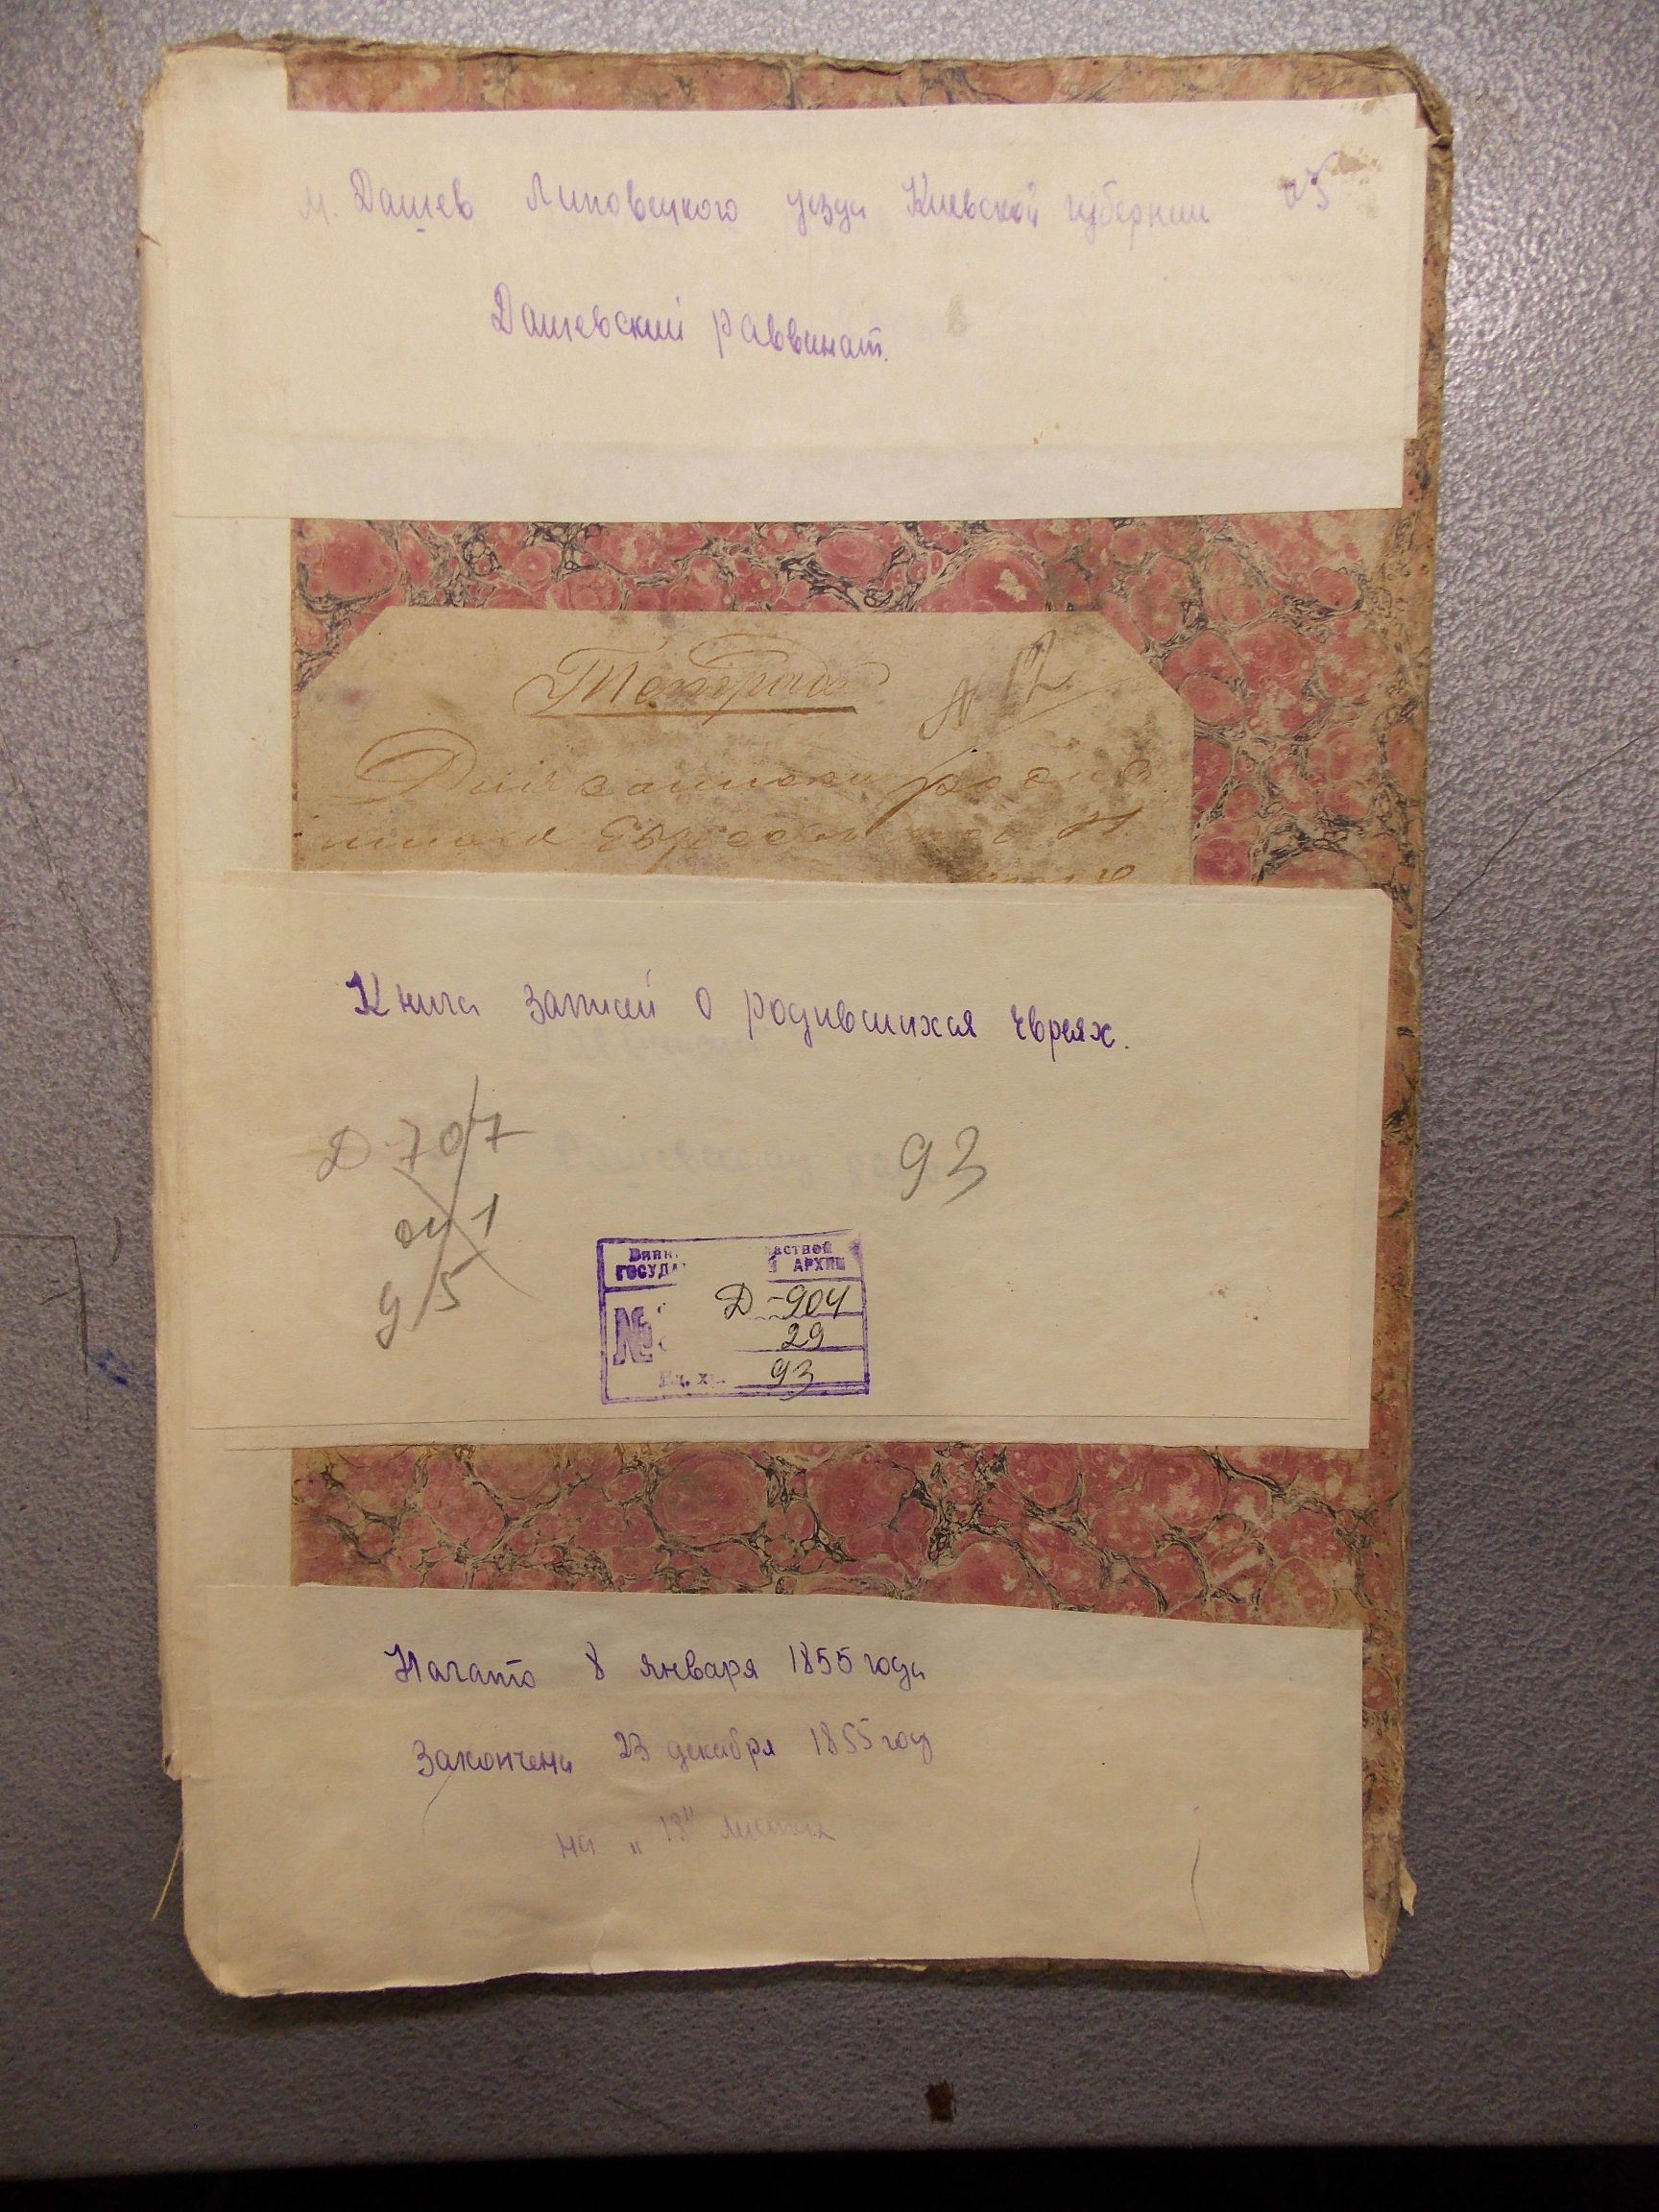 м. Дашев Липовецкого уезда Киевской губернии
Дашевский раввинат.
Тетрадь
№ 12
Для записки родив
шихся Евреев
Книга записей о родившихся евреях.
Д-707
оп 1
д 5
93
Винн астной
ГОСУДА й АРХИВ
№ Д-904
29
Ед. х. 93
Начато 8 января 1855 года
Закончена 23 декабря 1855 году
на „18" листах